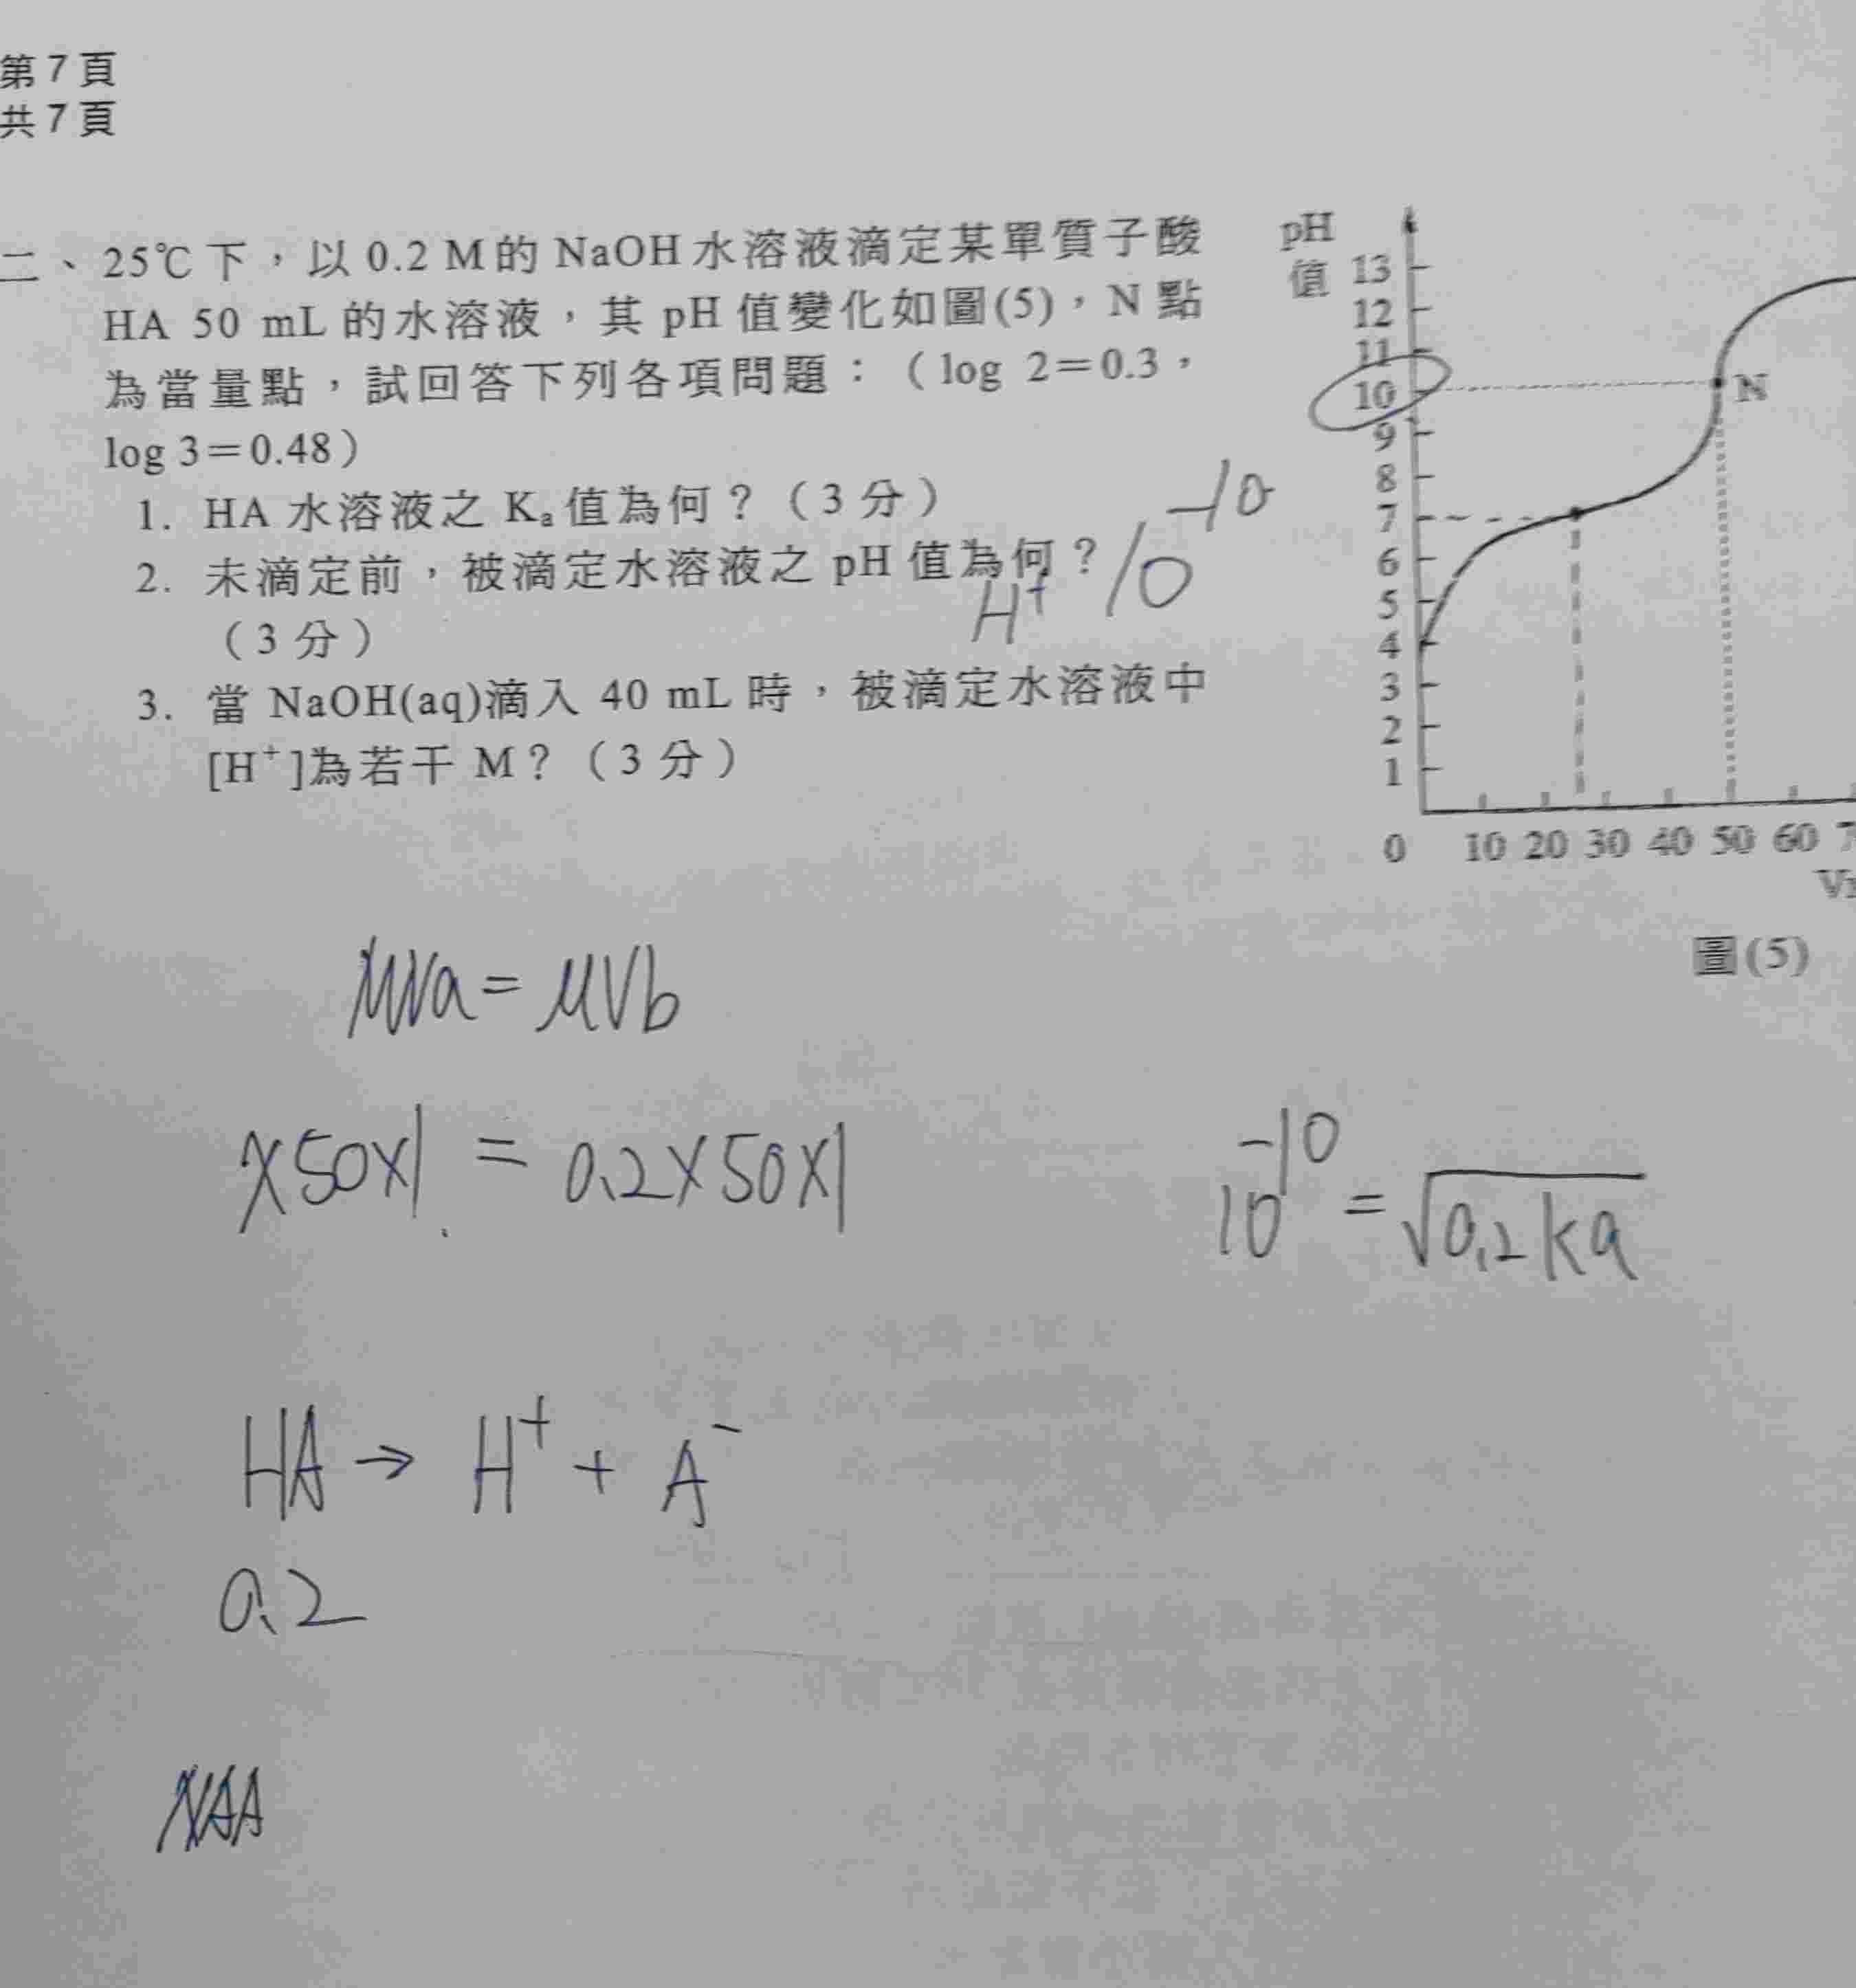 第7頁
共7頁
二、25℃下,以 0.2 M的 NaOH水溶液滴定某單質子酸
HA 50 mL 的水溶液,其 pH 值變化如圖(5),N 點
為當量點,試回答下列各項問題:(log 2=0.3,
log 3=0.48)
1. HA 水溶液之 Kₐ值為何?(3分)
2. 未滴定前,被滴定水溶液之 pH 值為何?
(3分)
3. 當 NaOH(aq)滴入 40 mL 時,被滴定水溶液中
[H⁺]為若干 M?(3分)
H⁺ 10⁻¹⁰
pH
值
13
12
11
10
9
8
7
6
5
4
3
2
1
N
0 10 20 30 40 50 60
圖(5)
MVa = MVb
X50X1 = 0.2X50X1
10⁻¹⁰ = √0.2ka
HA → H⁺ + A⁻
0.2